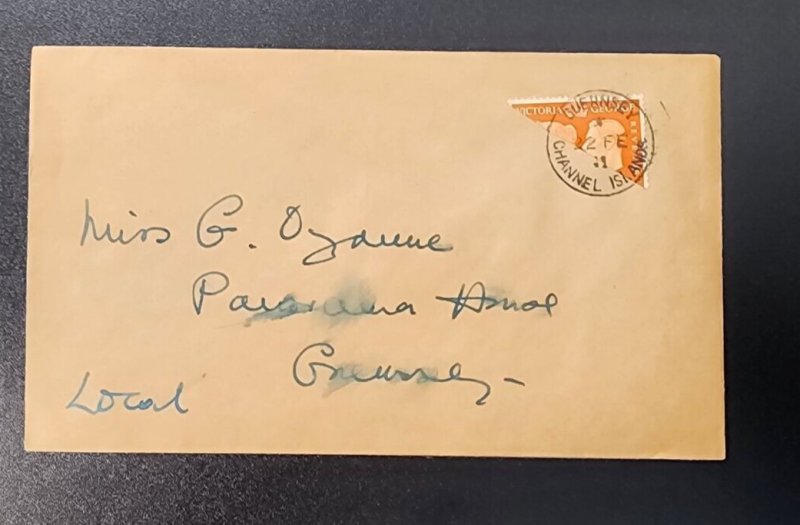 VICTORIA GEORGE
REVENUE
GUERNSEY
22 FE
41
CHANNEL ISLANDS
Miss G. Ozanne
Panorama House
Guernsey
Local